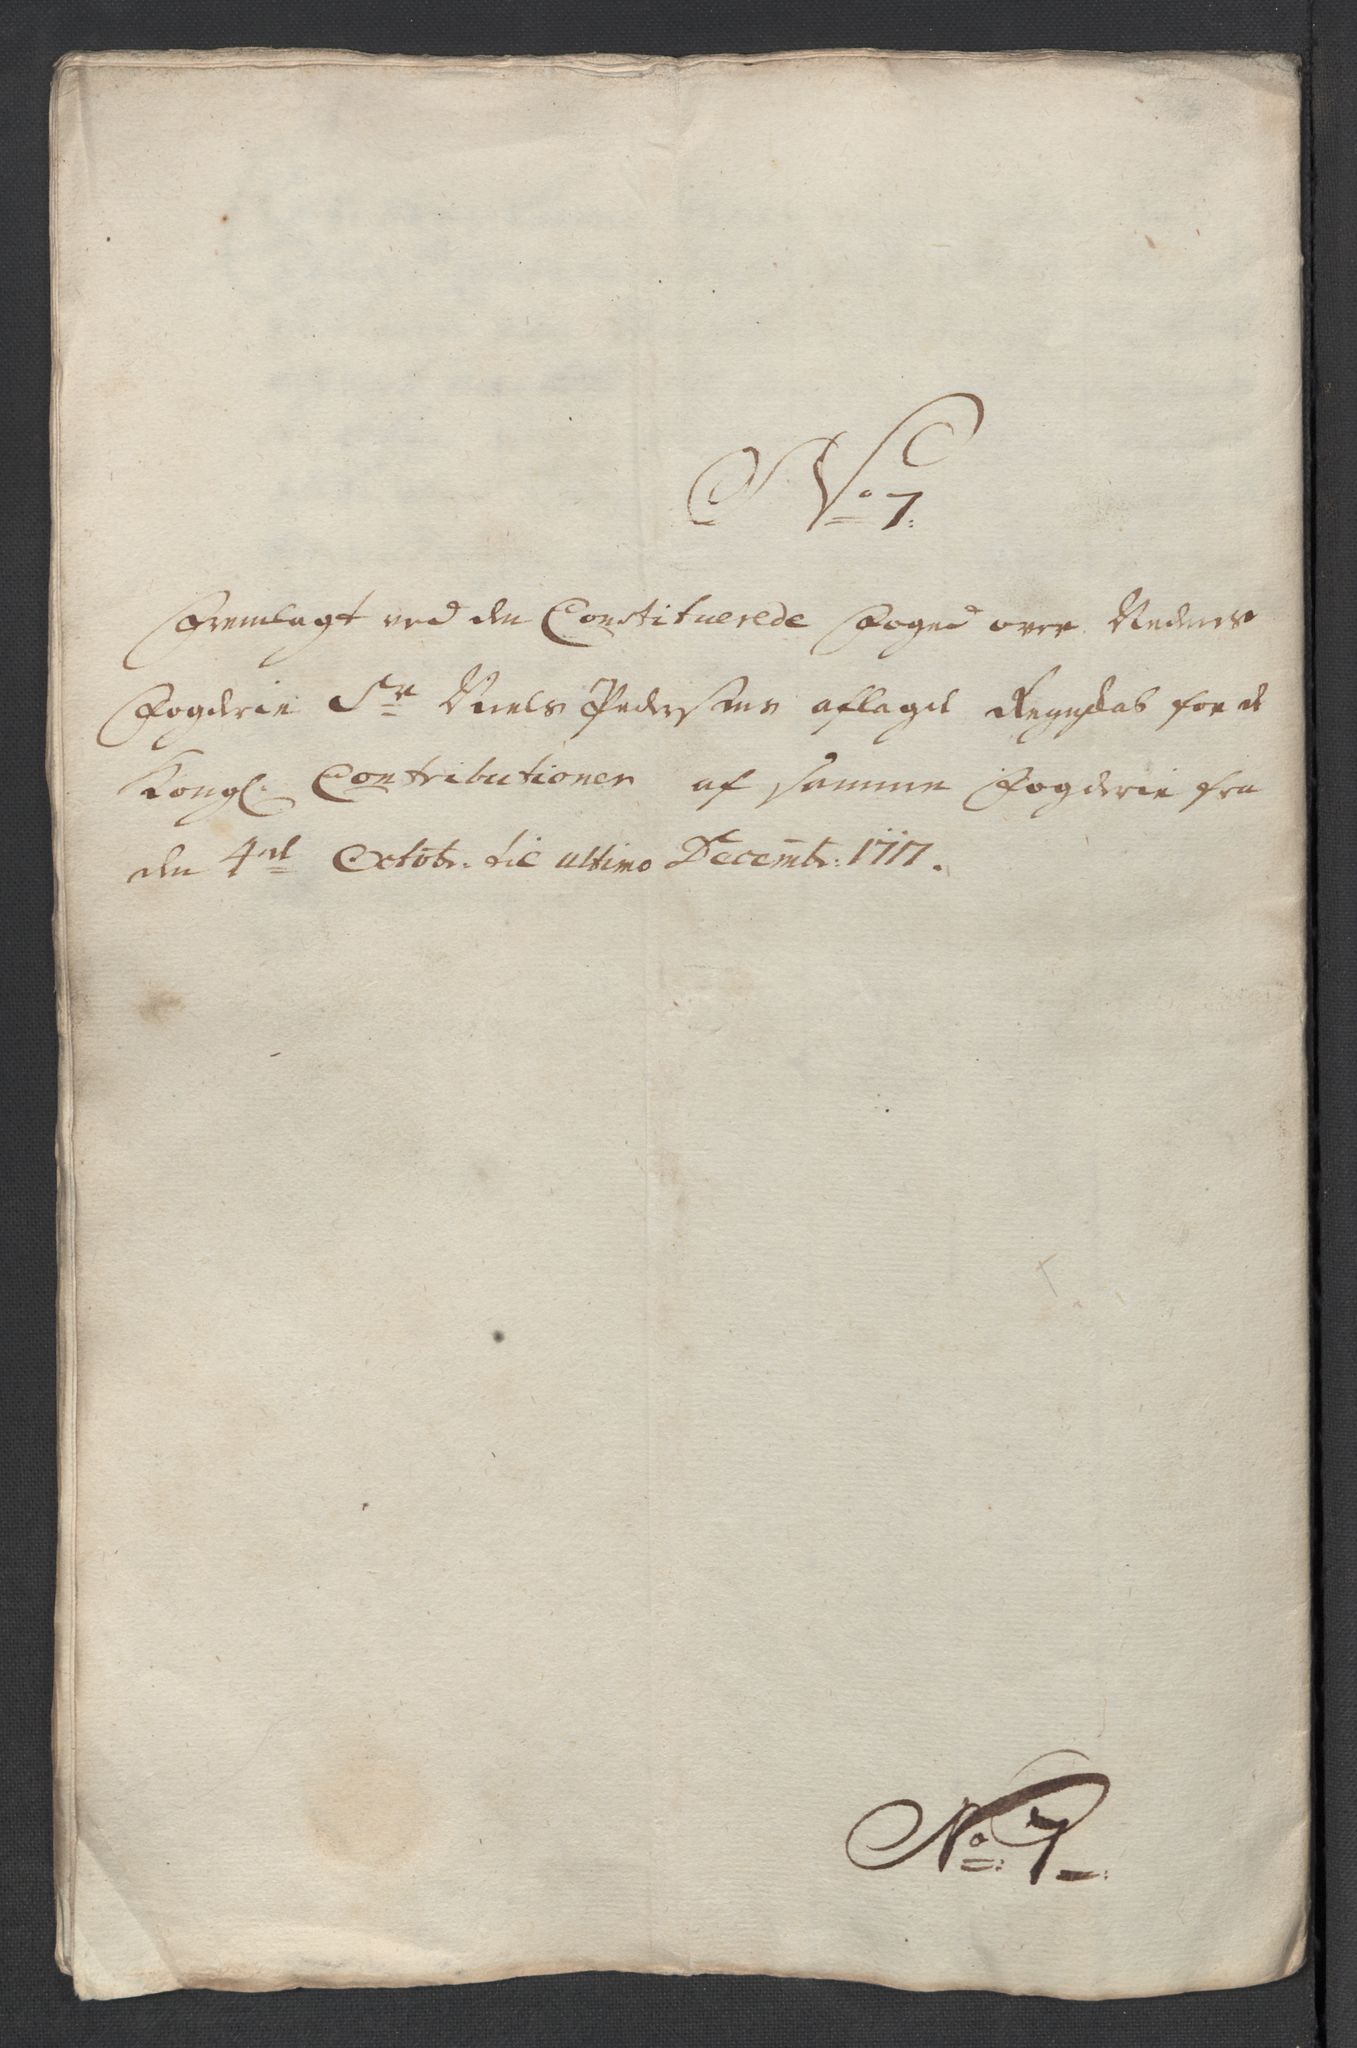 No 7:
Fremlagt ved den Constituerede Foged over Nedenes
Fogderie Sr Niels Pedersens aflagde Regnskab for de
Kongl: Contributioner af samme Fogderie fra
den 4de Octobr: til ultimo Decembr: 1717.
No: 7